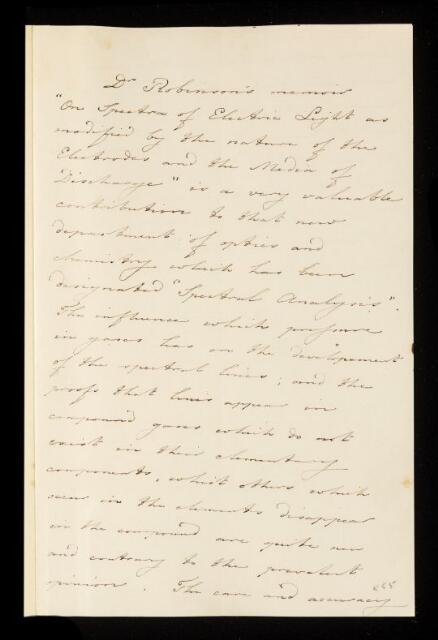 Dr Robinson's memoir
"On Spectra of Electric Light as
modified by the nature of the
Electrodes and the Media of
Discharge" is a very valuable
contribution to that new
department of optics and
chemistry which has been
designated "Spectral Analysis".
The influence which pressure
in gases has on the development
of the spectral lines; and the
proofs that lines appear in
compound gases which do not
exist in their elementary
components, whilst others which
occur in the elements disappear
in the compound are quite new
and contrary to the prevalent
opinion. The care and accuracy